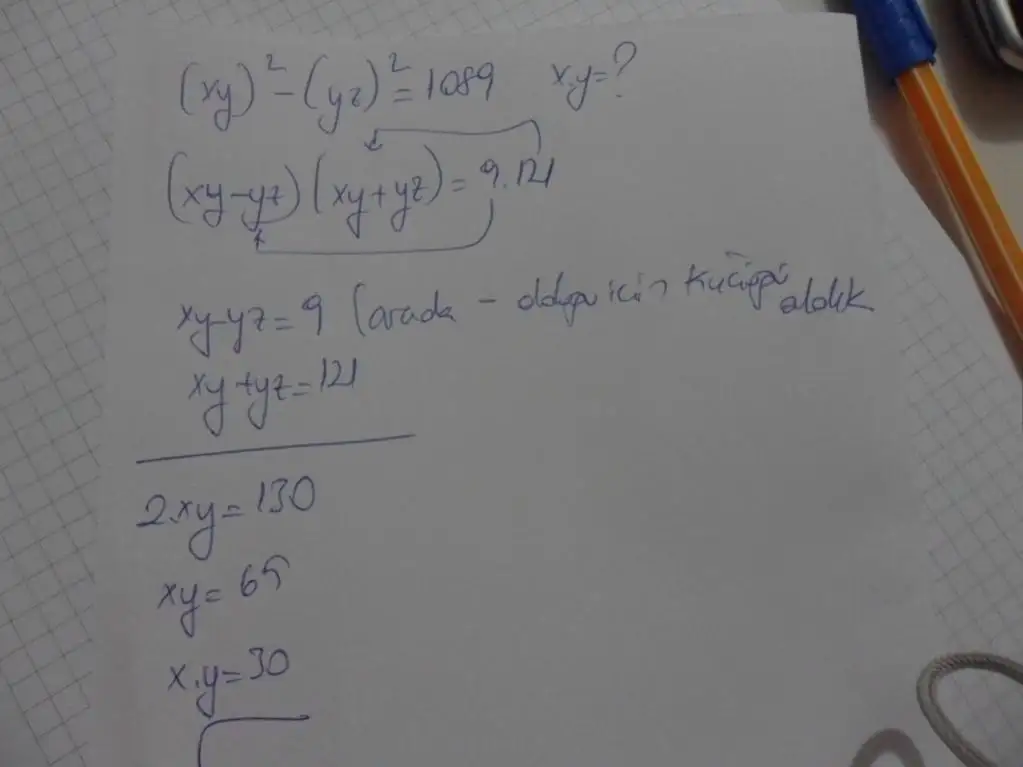 (xy)² - (yz)² = 1089 x.y=?
(xy-yz) (xy+yz) = 9.121
xy-yz = 9 (arada - olduğu için küçüğü aldık
xy+yz=121
2.xy=130
xy= 65
x.y=30